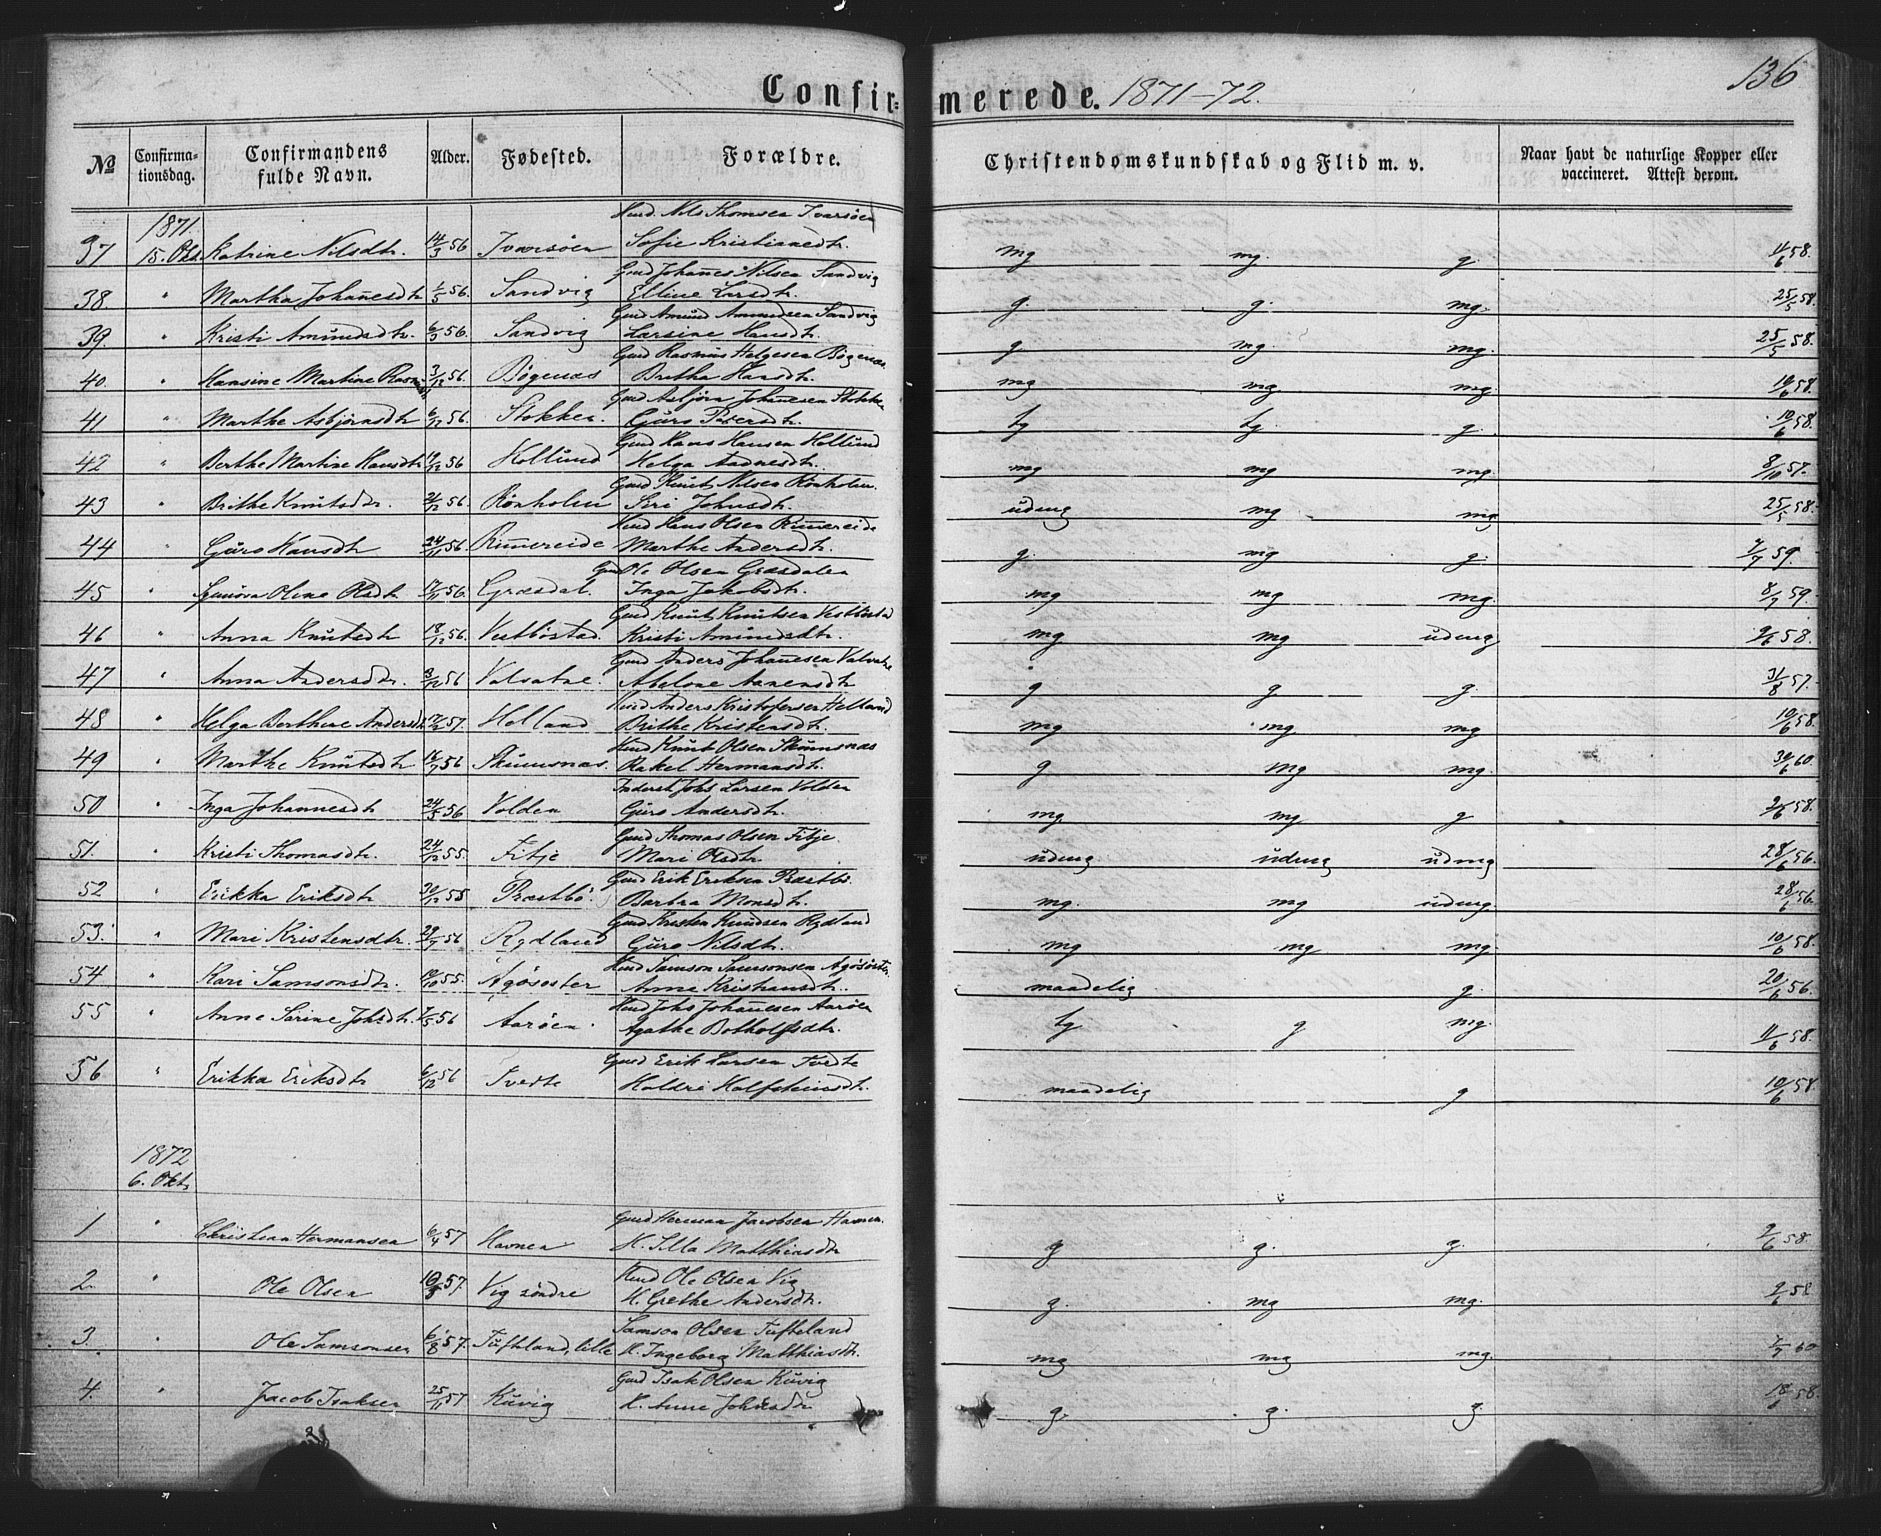 136
Confir= merede. 1871-72.
№ Confirma-tionsdag. Confirmandens fulde Navn. Alder. Fødested. Forældre. Christendomskundskab og Flid m. v. Naar havt de naturlige Kopper eller vaccineret. Attest derom.
1871.
Huusmd. Nils Thomsen Ivarsøen
37 15. Okt. Katrine Nilsdtr. 14/3 56 Ivarsøen Sofie Kristianedtr. mg mg. g. 11/6 58.
Gmd Johannes Nilsen Sandvig
38. " Martha Johanesdtr 1/5 56. Sandvig Elline Larsdtr. g. g. mg. 25/5 58.
Gmd Amund Amundsen Sandvig
39. " Kristi Amundsdtr. 6/3 56. Sandvig Larsine Hansdtr. g. mg. mg. 25/5 58.
Gmd Rasmus Helgesen Bøgenæs
40. " Hansine Martine Rasm 3/12 56. Bøgenæs Brithe Hansdtr. mg mg mg. 10/6 58.
Gmd Asbjørn Johanesen Stokken
41 " Marthe Asbjørnsdtr 6/12 56. Stokken. Guro Pedersdtr. tg tg. g. 10/6 58.
Gmd Hans Hansen Hollund
42 " Berthe Martine Hansdtr 19/12 56 Hollund Helga Aadnesdtr. mg mg mg. 8/10 57.
Gmd Knut Nilsen Rønholen.
43 " Brithe Knutsdtr 21/12 56. Rønholen Siri Johnsdtr. udmg mg mg 25/5 58.
Hmd Hans Olsen Rimereide
44 " Guro Hansdtr 24/11 56. Rimereide Marthe Andersdtr. g. mg g. 7/7 59.
Gmd Ole Olsen Græsdalen
45 " Olene Olsdtr 17/11 56. Græsdal. Inga Jakobsdtr. mg mg mg. 8/7 59.
Gmd Knut Knutsen Vestbøstad
46 " Anna Knutsdtr 18/12 56. Vestbøstad. Kristi Amundsdtr. mg mg udmg 9/6 58.
Gmd Anders Johanesen Valvatne
47 " Anna Andersdtr. 3/12 56 Valvatne. Abelone Aanensdtr g g g. 31/8 57.
Hmd Anders Kristofersen Helland
48 " Helga Berthine Andersdtr 17/2 57. Helland Brithe Kristensdtr. mg mg mg 10/6 58.
Hmd Knut Olsen Skumsnæs
49 " Marthe Knutsdtr 16/7 56 Skumsnæs. Rakel Hermansdtr. g mg mg. 30/6 60.
Inderst Johs Larsen Volden
50 " Inga Johannesdtr 24/5 56 Volden Guro Andersdtr. mg mg g 2/6 58.
Gmd Thomas Olsen Fitje
51. " Kristi Thomasdtr. 24/12 55. Fitje Mari Olsdtr. udmg udmg udmg 28/6 56.
Gmd Erik Eriksen Præstbø.
52 " Erikka Eriksdtr 30/12 55 Præstbø. Barbra Monsdtr. mg. mg udmg. 28/6 56.
Gmd Kristen Knudsen Rydland
53. " Mari Kristensdtr. 29/7 56 Rydland Guro Nilsdtr. mg mg mg. 10/6 58.
Hmd Samson Samsonsen Agdsester
54 " Kari Samsonsdtr. 19/10 55. Agdsester Anne Kristiansdtr. maadelig g. 20/6 56.
Hmd Johs Johanesen Aarøen
55 " Anne Serine Johsdtr. 7/5 56 Aarøen. Agathe Botholfsdtr. tg g mg. 11/6 58.
Gmd Erik Larsen Tvedte
56 " Erikka Eriksdtr 6/12 56 Tvedte Holdri Halfsteinsdtr. maadelig g 10/6 58.
1872
6. Okt.
Gmd Herman Jacobsen Havnen.
1 " Christian Hermansen 6/4 57 Havnen H. Silla Matthiasdtr g g. g. 2/6 58.
Hmd Ole Olsen Vig
2 " Ole Olsen 10/3 57. Vig søndre H. Grethe Andersdtr. g. mg mg. 9/6 58
Samson Olsen Tufteland
3. " Ole Samsonsen 6/8 57. Tuftland, lille H. Ingeborg Matthiasdtr. mg mg mg. 7/7 60
Gmd Isak Olsen Kuvig
4. " Jacob Isaksen 25/11 57 Kuvig H. Anne Johnsdtr g. g. g. 18/6 58.